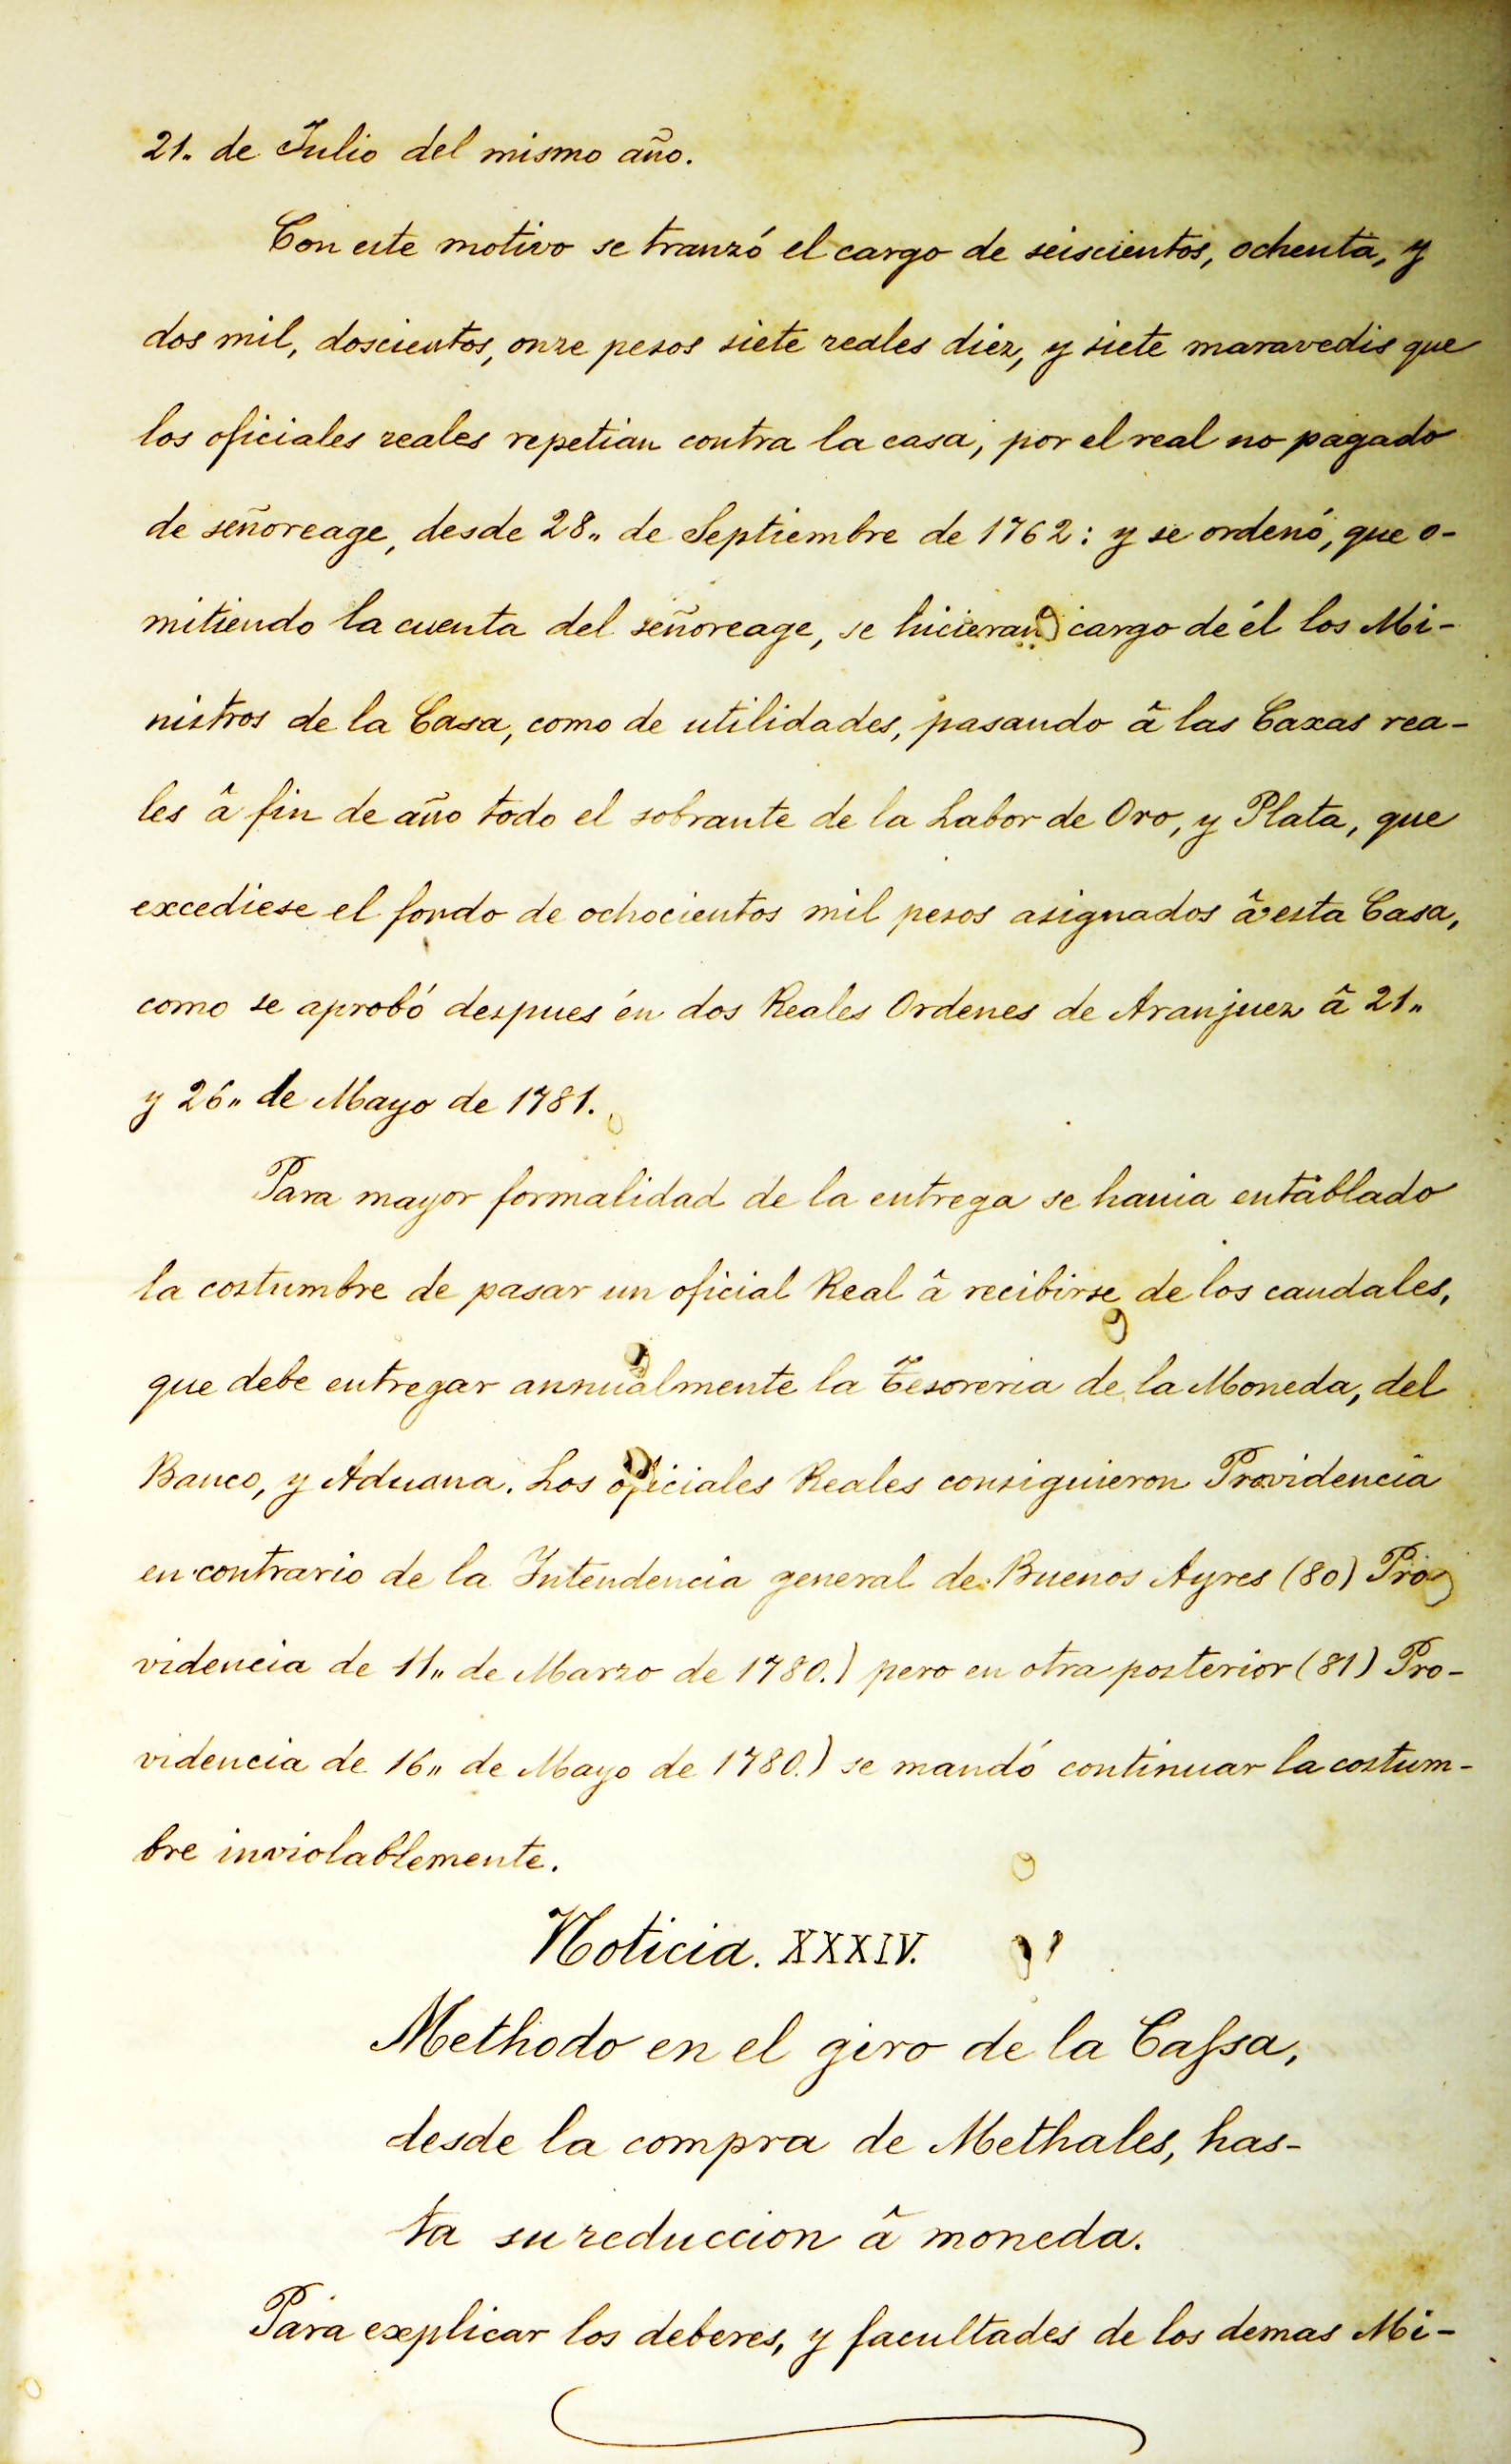 21„ de Julio del mismo año.
Con este motivo se tranzó el cargo de seiscientos, ochenta, y
dos mil, doscientos, onze pesos siete reales diez, y siete maravedis que
los oficiales reales repetian contra la casa, por el real no pagado
de señoreage, desde 28„ de Septiembre de 1762: y se ordenó, que o-
mitiendo la cuenta del señoreage, se hicieran cargo de él los Mi-
nistros de la Casa, como de utilidades, pasando â las Caxas rea-
les â fin de año todo el sobrante de la Labor de Oro, y Plata, que
excediese el fondo de ochocientos mil pesos asignados â esta Casa,
como se aprobó despues én dos Reales Ordenes de Aranjuez â 21„
y 26„ de Mayo de 1781.
Para mayor formalidad de la entrega se hauia entablado
la costumbre de pasar un oficial Real â recibirse de los caudales,
que debe entregar annualmente la Tesoreria de la Moneda, del
Banco, y Aduana. Los oficiales Reales consiguieron Providencia
en contrario de la Intendencia general de Buenos Ayres (80) Pro-
videncia de 11„ de Marzo de 1780.) pero en otra posterior (81) Pro-
videncia de 16„ de Mayo de 1780.) se mandó continuar la costum-
bre inviolablemente.
Noticia. XXXIV.
Methodo en el giro de la Caſsa,
desde la compra de Methales, has-
ta su reduccion â moneda.
Para explicar los deberes, y facultades de los demas Mi-